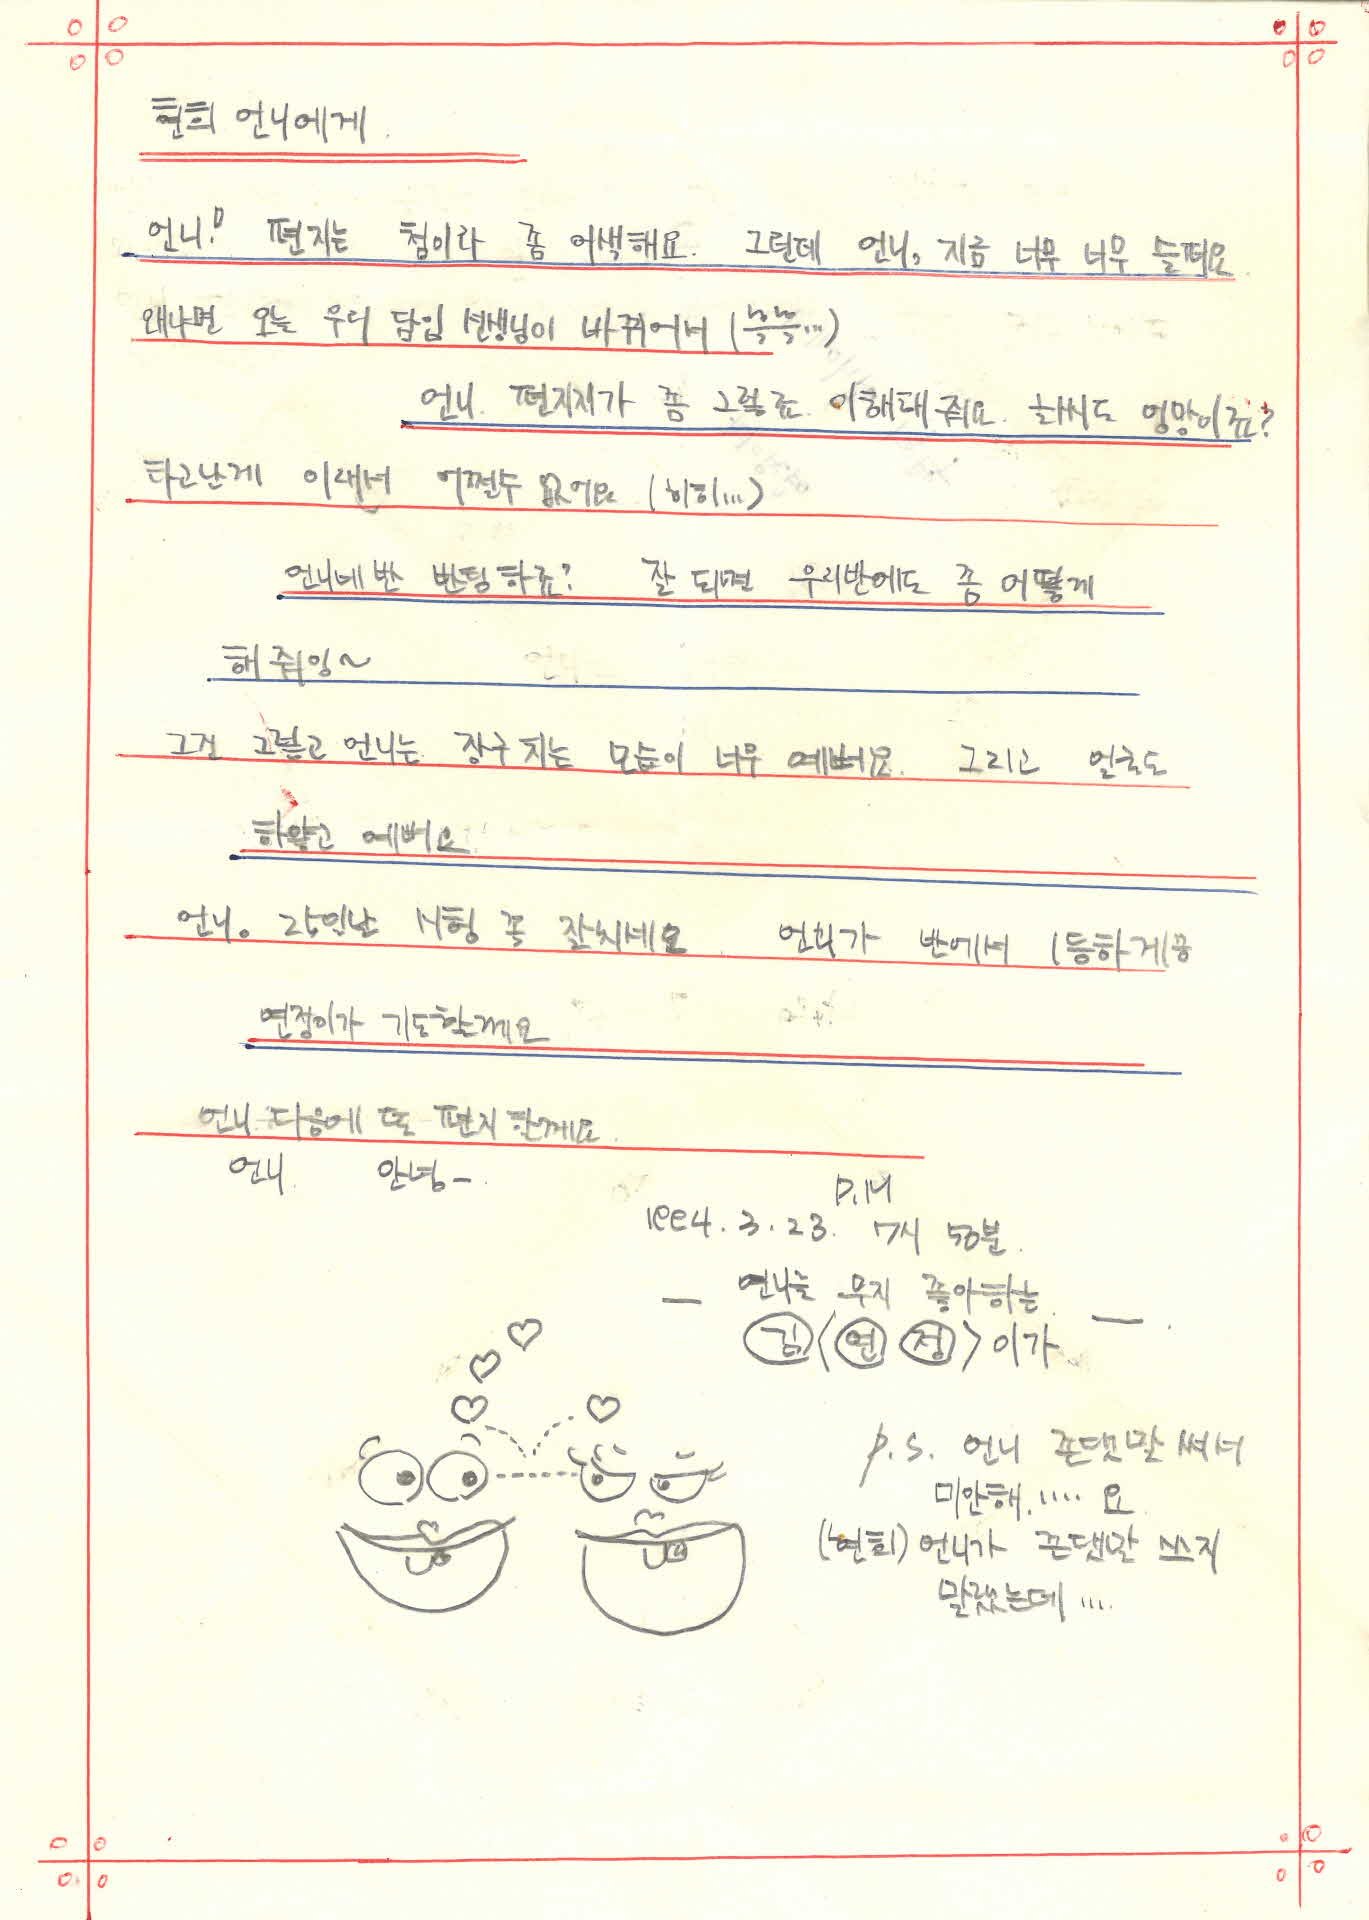 현희 언니에게.
언니! 편지는 첨이라 좀 어색해요. 그런데 언니, 지금 너무 너무 슬퍼요.
왜냐면 오늘 우리 담임 선생님이 바뀌어서 (흑흑...)
언니. 편지지가 좀 그렇죠. 이해해 줘요. 글씨도 엉망이죠?
타고난게 이래서 어쩔수 없어요 (히히...)
언니네 반 반팅하죠? 잘 되면 우리반에도 좀 어떻게
해 줘잉~
그건 그렇고 언니는 장구 치는 모습이 너무 예뻐요. 그리고 얼굴도
하얗고 예뻐요.
언니. 25일날 시험 꼭 잘치세요 언니가 반에서 1등하게끔
연정이가 기도할께요
언니 다음에 또 편지 할께요.
언니. 안녕-.
P.M
1994. 3. 23. 7시 50분.
- 언니를 무지 좋아하는 -.
김<연정>이가
p.s. 언니 존댓말 써서
미안해..... 요
(현희) 언니가 존댓말 쓰지
말랬는데 ....